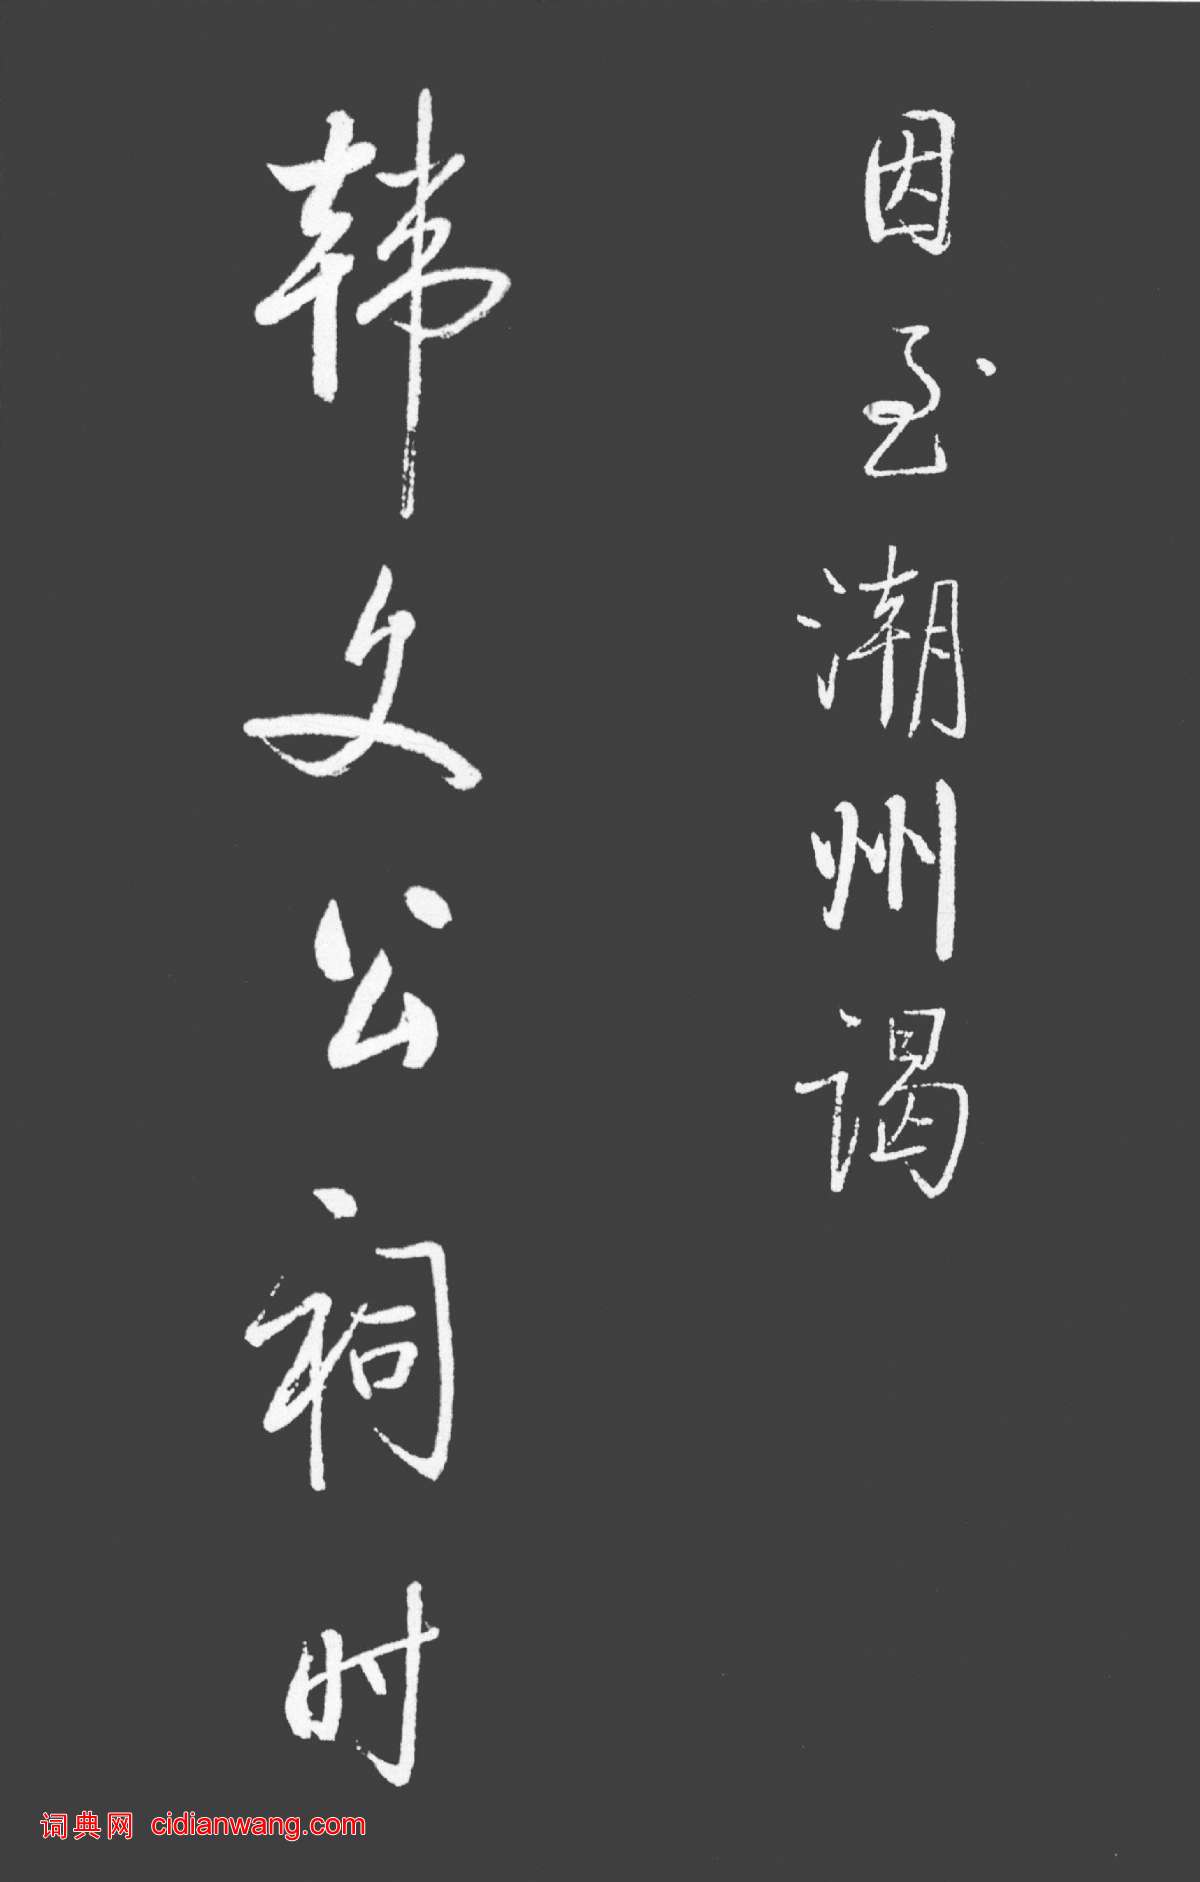 因至潮州谒
韩文公祠时
词典网 cidianwang.com